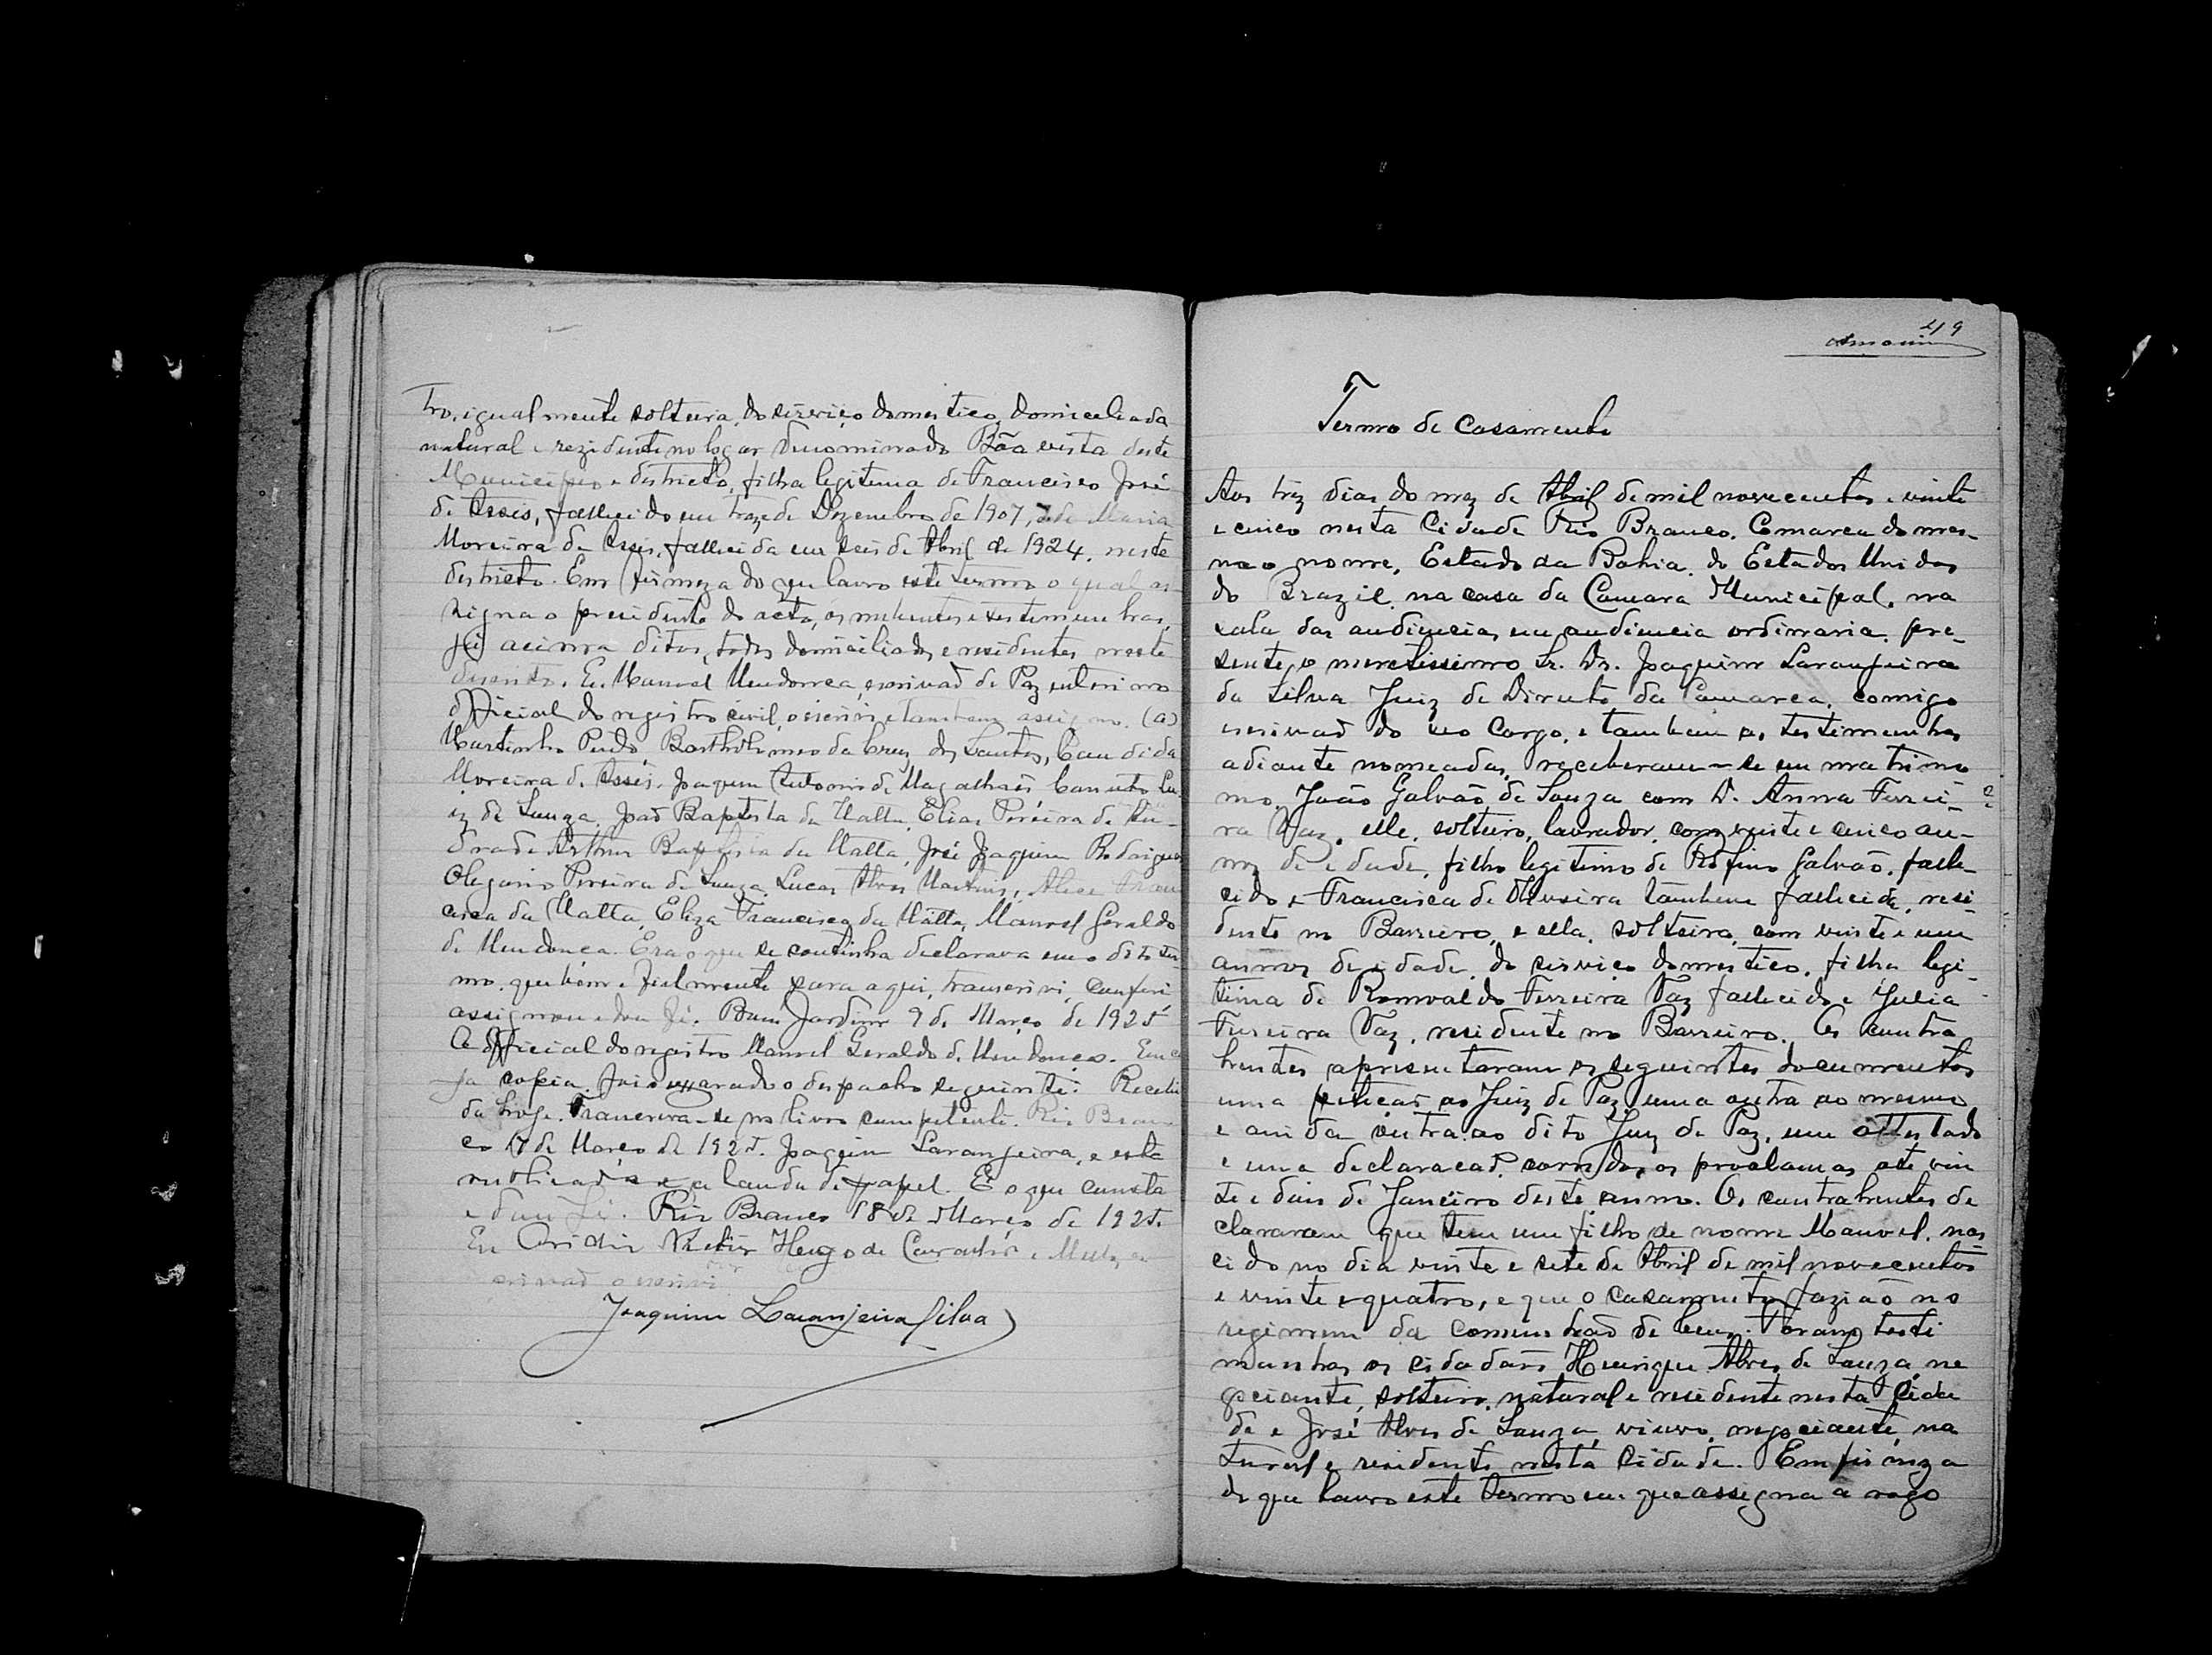 tro, igualmente solteira, do serviço domestico, domiceliada
natural e rezidente no logar denominado Bôa vista deste
Municipio e destricto, filha legitima de Francisco José
de Assis, fallecido em treze de Dezembro de 1907, e de Maria
Moreira de Assis, fallecida em seis de Abril de 1924, neste
destricto. Em firmeza do que lavro este termo o qual as-
signa o presidente do acto, os nubentes e testimunhas,
já acima ditos, todos domiciliados e residentes neste
districto. Eu Manoel Mendonca, escrivaõ de Paz interino
official do registro civil, o escrivi e tambem assigno. (a)
Martinho Bartholomeo da Cruz dos Santos, Candida
Moreira de Assis, Joaquim Antonio de Magalhães Canuto Lu-
iz de Souza, Joaõ Baptista da Matta, Elias Pereira de An-
drade Arthur Baptista da Matta, José Joaquim Rodrigues
Olegario Pereira de Souza, Lucas Alves Martins, Fran
cisca da Matta, Eliza Francisca da Matta, Manoel Geraldo
de Mendonca. Era o que se continha declarava em o dito ter-
mo, que bem e fielmente para aqui, transcrivi, conferi
assignou e dou fé. Bom Jardim 9 de Março de 1925
O official do registro Manoel Geraldo de Mendonça. Em cu
ja copia, foi exarado o despacho seguinte: Recebi
da hoje. Transcreva-se no livro competente. Rio Bran-
co 17 de Março de 1925. Joaquim Laranjeira, e esta
a lauda de papel. É o que consta
e dou fé. Rio Branco 18 de Março de 1925.
Eu Victor Hugo de es
crivaõ o escrivi
Joaquim Laranjeira Silva
49
Termo de Casamento
Aos trez dias do mez de Abril de mil novecentos e vinte
e cinco nesta Cidade Rio Branco, Comarca do mes-
mo nome, Estado da Bahia, do Estados Unidos
do Brazil, na casa da Camara Municipal, na
sala das audiencias, em audiencia ordinaria, pre-
sente, o meretissimo Sr. Dr. Joaquim Laranjeira
da Silva Juiz de Direito da Comarca, comigo
escrivaõ do seo Cargo, e tambem as testimunhas
adiante nomeadas, receberam-se em matrimo
nio, João Galvão de Souza com D. Anna Ferrei-
ra Vaz, elle, solteiro, lavrador, com vinte e cinco an-
nos de idade, filho legitimo de Rofino Galvão, falle-
cido e Francisca de Oliveira tambem fallecida, resi-
dente no Barreiro, e ella, solteira, com vinte e um
annos de idade, do serviço domestico, filha legi-
tima de Romvaldo Ferreira Vaz fallecido e Julia
Ferreira Vaz, residente no Barreiro. Os contra
hentes apresentaram os seguintes documentos
uma petiçaõ ao Juiz de Paz, uma outra ao mesmo
e ainda outra ao dito Juiz de Paz, um attestado
e uma declaracaõ, corridos, os proclamas até vin
te e dois de Janeiro deste anno. Os contrahentes de
clararam que tem um filho de nome Manoel, nas
cido no dia vinte e sete de Abril de mil novecentos
e vinte e quatro, e que o casamento faziaõ no
regimem da comunhaõ de bens. Foram testi
munhas os cidadãos Henrique Alves de Souza, ne
gociante, solteiro, natural e residente nesta Cida
de e José Alves de Souza, viuvo, negociante, na
tural e residente nesta Cidade. Em firmeza
do que lavro este termo em que assigna a rogo